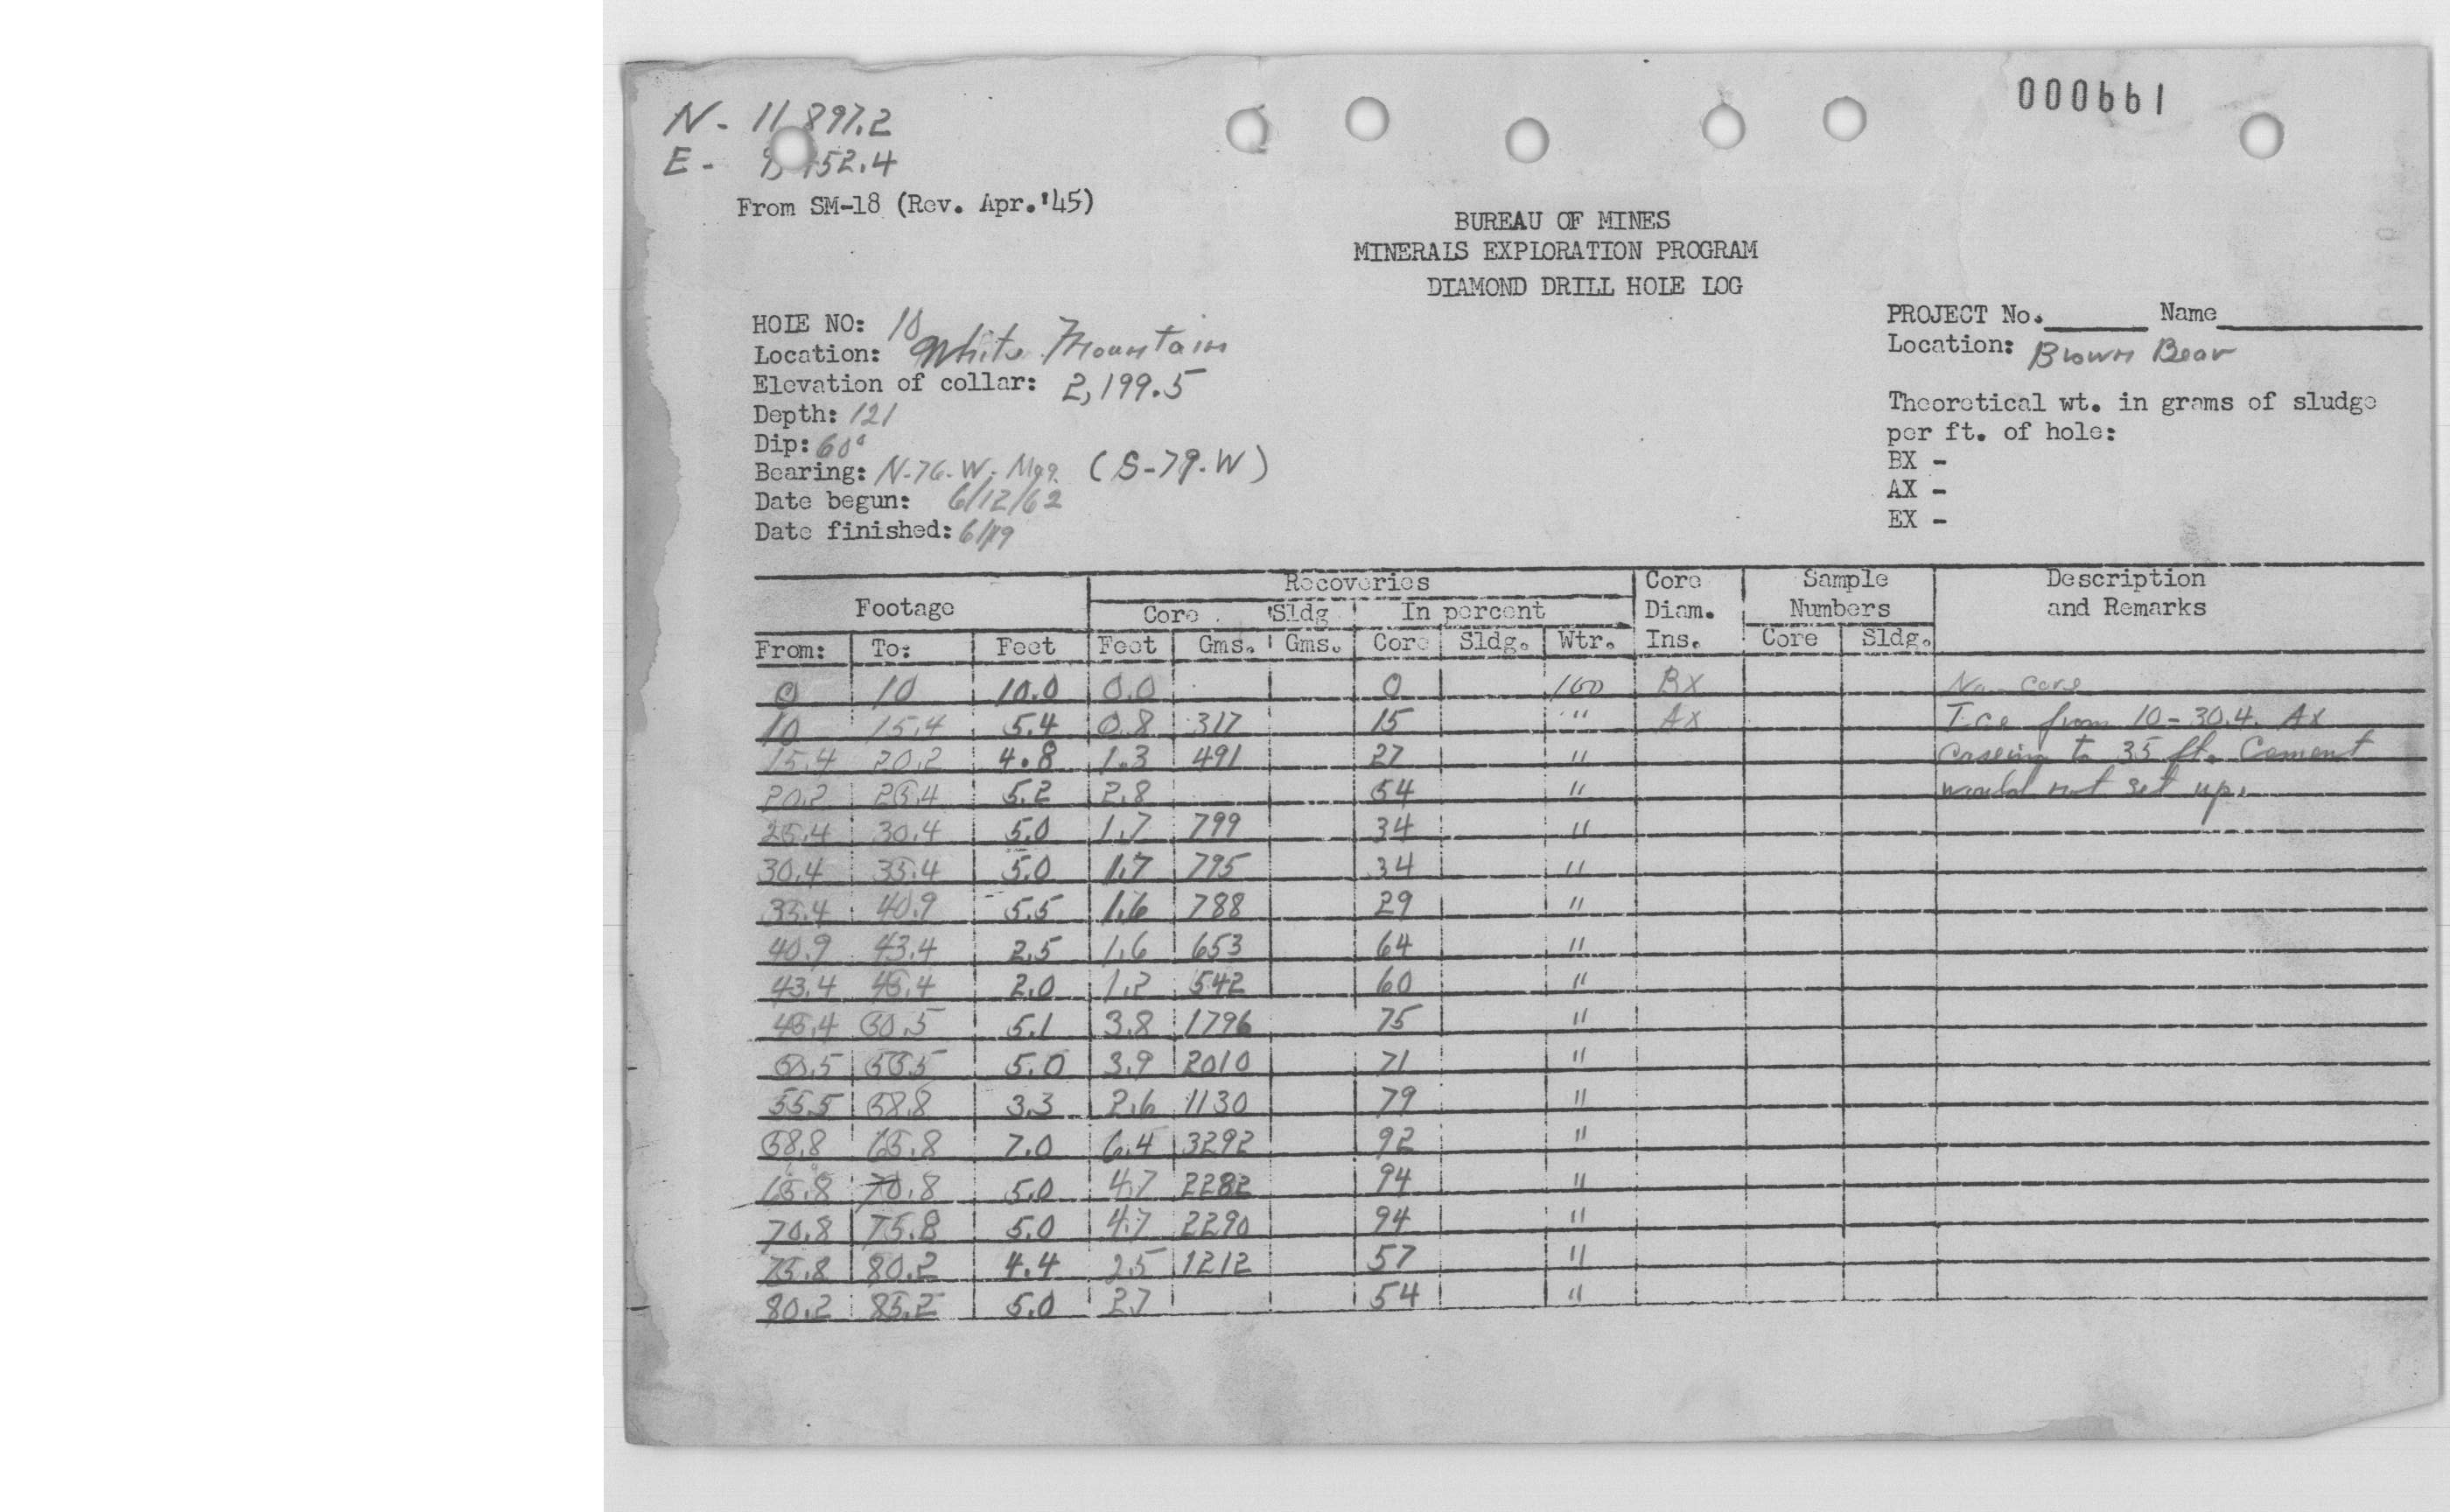 000661
N - 11,897.2
E - 52.4
From SM-18 (Rev. Apr. '45)
BUREAU OF MINES
MINERALS EXPLORATION PROGRAM
DIAMOND DRILL HOLE LOG
HOLE NO: 10
Location: White Mountain
Elevation of collar: 2,199.5
Depth: 121
Dip: 60°
Bearing: N-76-W. Mag. (S-79-W)
Date begun: 6/12/62
Date finished: 6/19
PROJECT No. Name
Location: Brown Bear
Theoretical wt. in grams of sludge
per ft. of hole:
BX -
AX -
EX -
Footage Recoveries Core Diam. Ins. Sample Numbers Description and Remarks
Core Sldg In percent
From: To: Feet Feet Gms. Gms. Core Sldg. Wtr. Core Sldg.
0 10 10.0 0.0 0 100 BX No core
10 15.4 5.4 0.8 317 15 " AX Ice from 10-30.4. Ax
15.4 20.2 4.8 1.3 491 27 " caseing to 35 ft. Cement
20.2 25.4 5.2 2.8 54 " would not set up.
25.4 30.4 5.0 1.7 799 34 "
30.4 35.4 5.0 1.7 795 34 "
35.4 40.9 5.5 1.6 788 29 "
40.9 43.4 2.5 1.6 653 64 "
43.4 45.4 2.0 1.2 542 60 "
45.4 50.5 5.1 3.8 1796 75 "
50.5 55.5 5.0 3.9 2010 71 "
55.5 58.8 3.3 2.6 1130 79 "
58.8 65.8 7.0 6.4 3292 92 "
65.8 70.8 5.0 4.7 2282 94 "
70.8 75.8 5.0 4.7 2290 94 "
75.8 80.2 4.4 2.5 1212 57 "
80.2 85.2 5.0 2.7 54 "